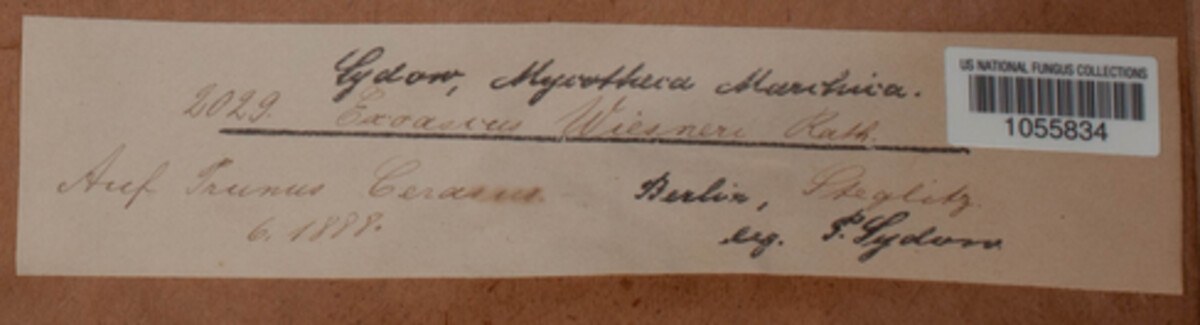 Sydow, Mycotheca Marchica.
2029. Exoascus Wiesneri Rath.
Auf Prunus Cerasus. Berlin, Steglitz.
6. 1888. leg. P. Sydow
US NATIONAL FUNGUS COLLECTIONS
1055834